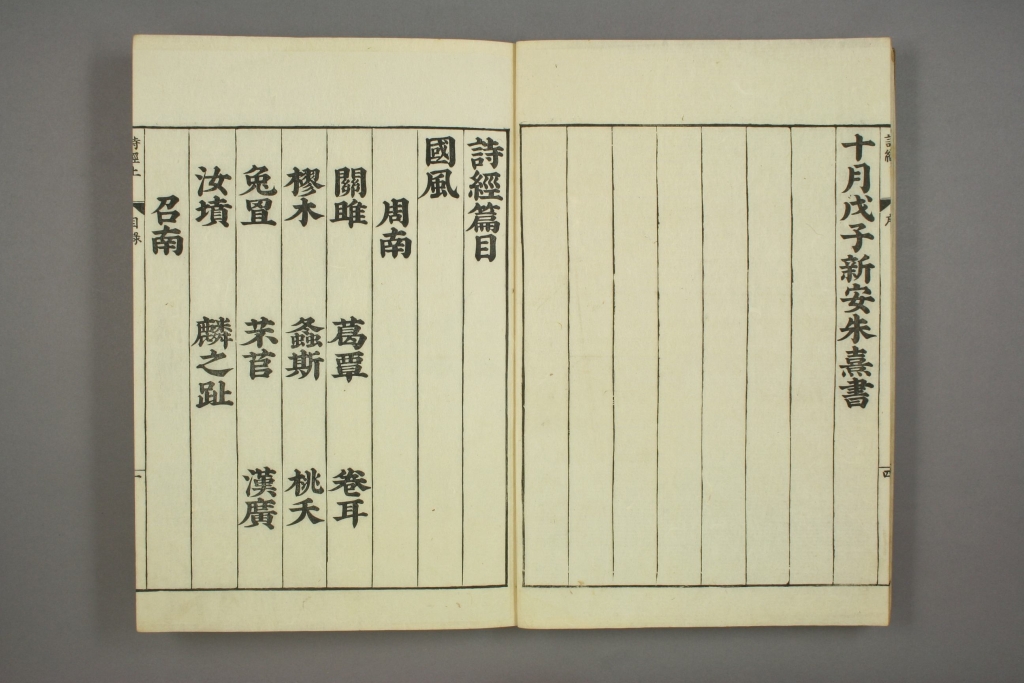 十月戊子新安朱熹書
詩經篇目
國風
周南
關雎　葛覃　卷耳
樛木　螽斯　桃夭
兔罝　芣苢　漢廣
汝墳　麟之趾
召南
詩經上　目錄　一